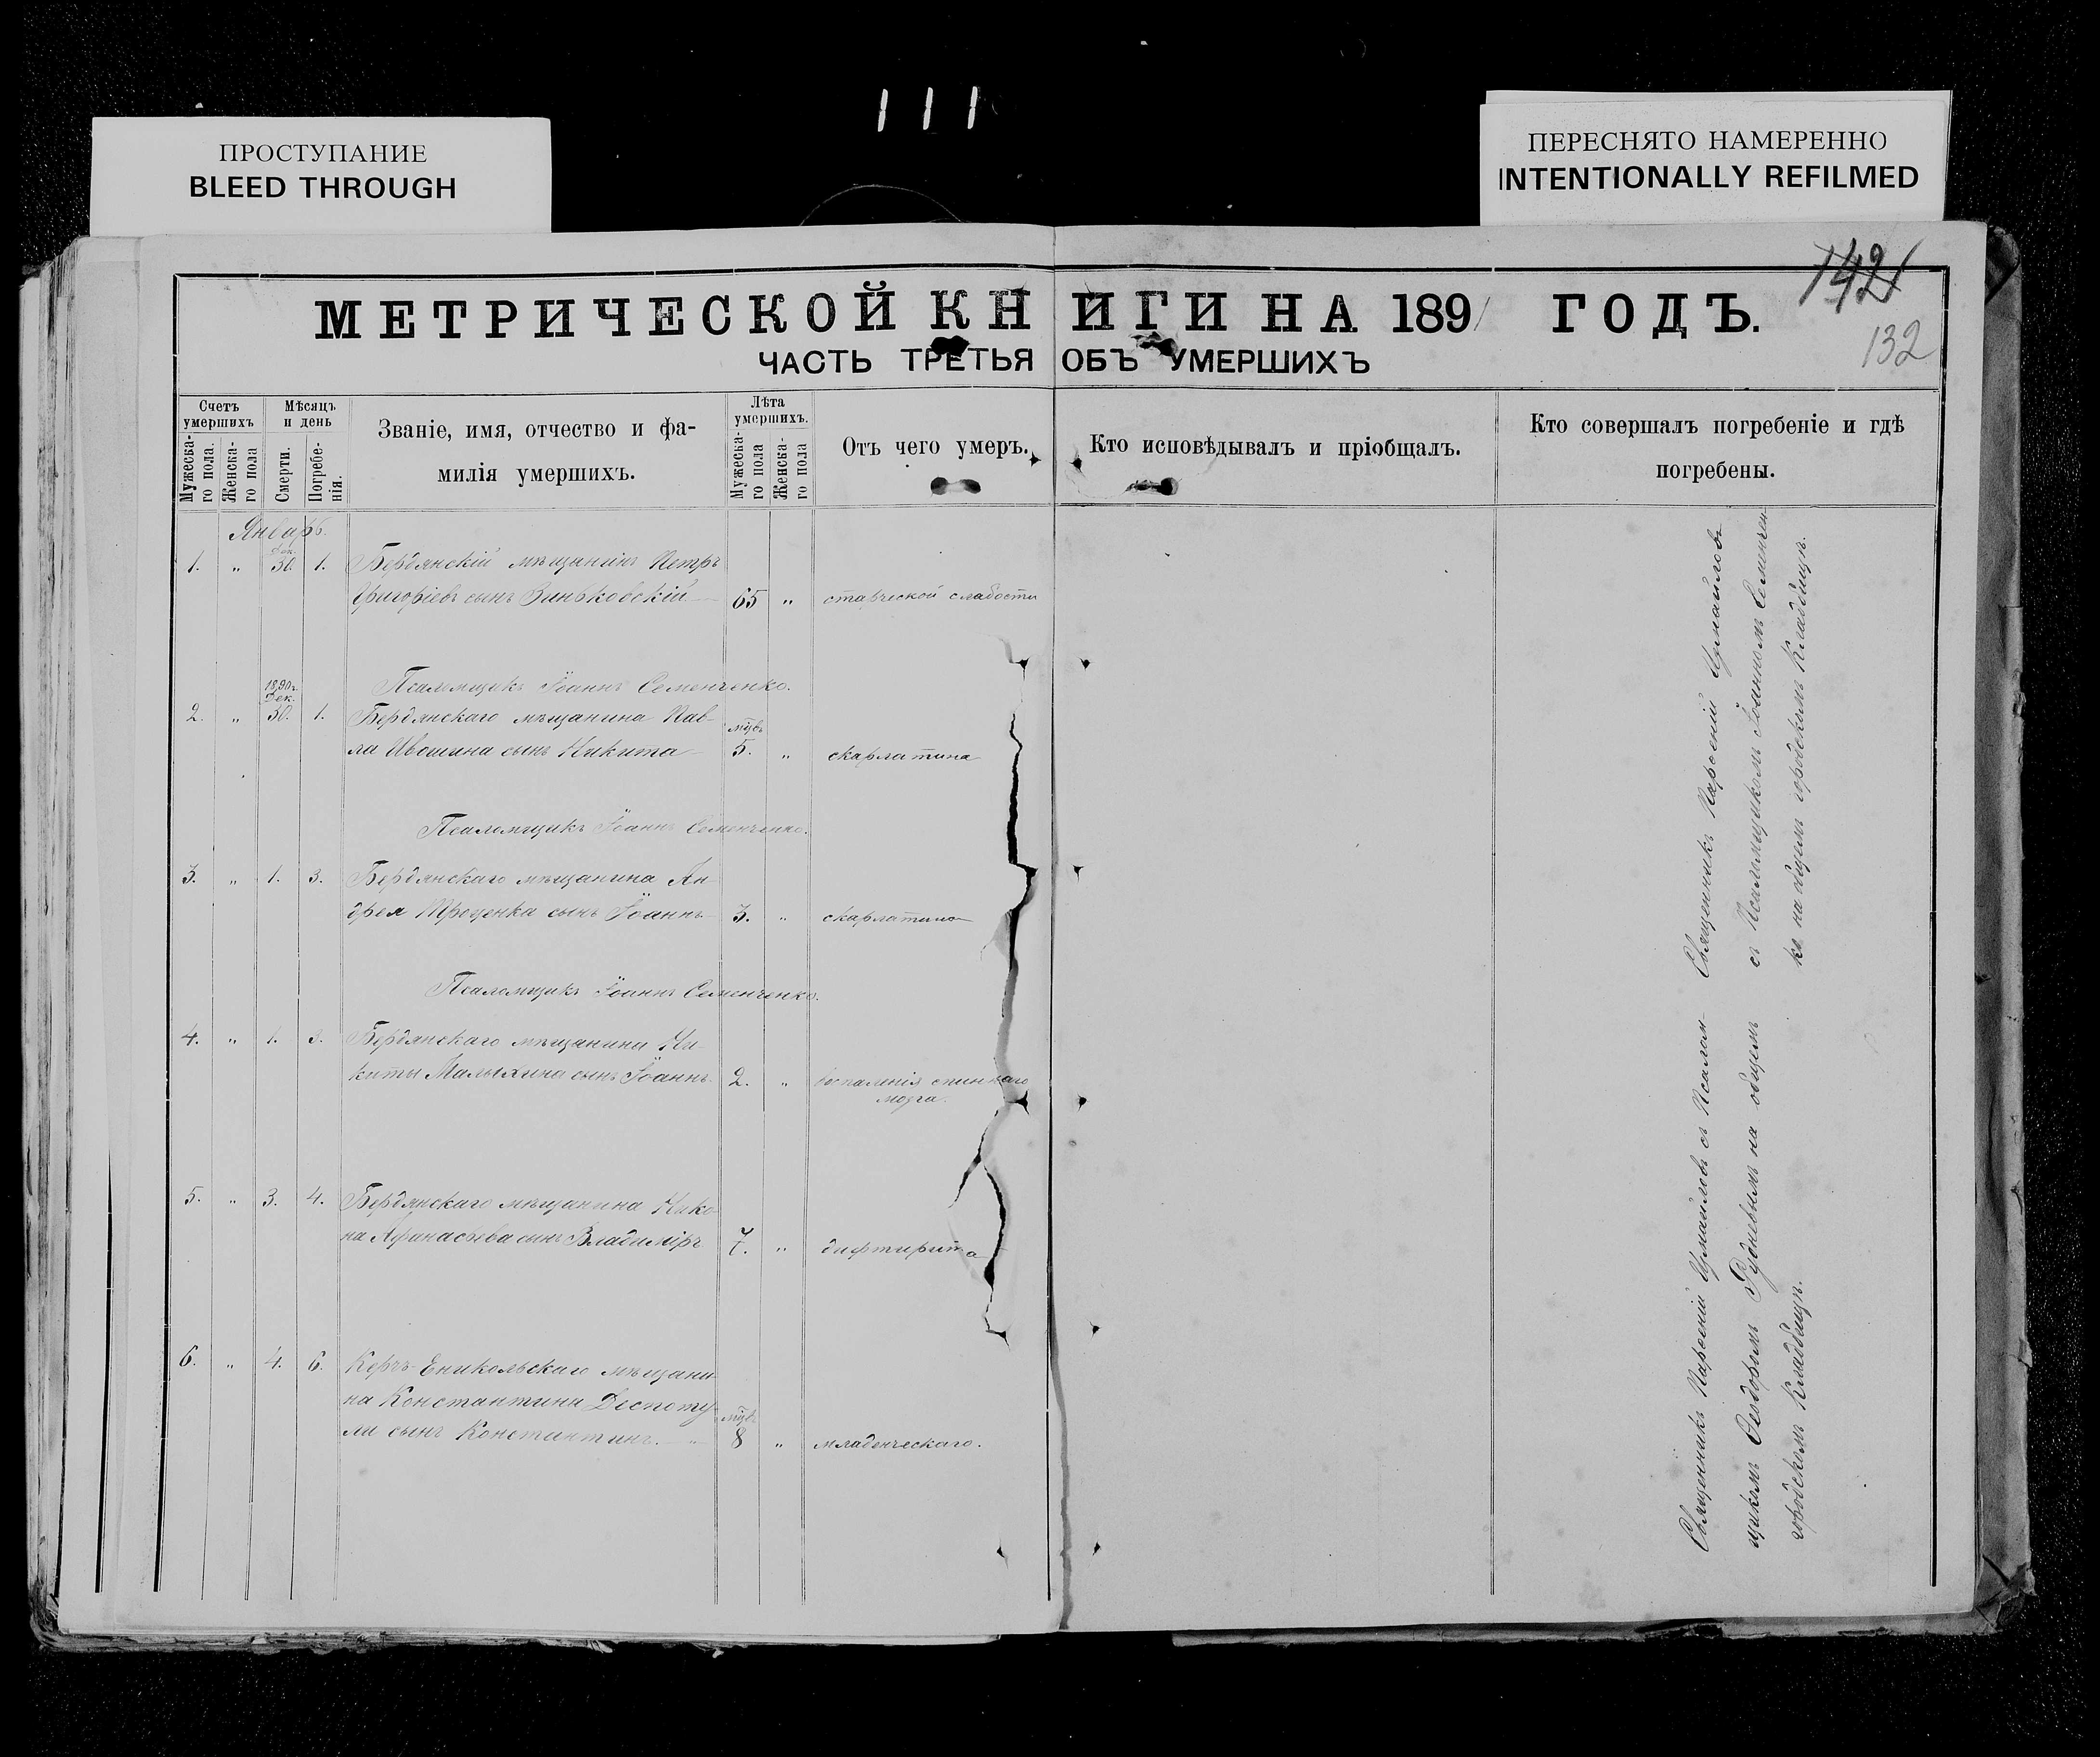 ПРОСТУПАНИЕ
BLEED THROUGH
ПЕРЕСНЯТО НАМЕРЕННО
INTENTIONALLY REFILMED
142
132
МЕТРИЧЕСКОЙ КНИГИ НА 1891 ГОДЪ.
ЧАСТЬ ТРЕТЬЯ ОБЪ УМЕРШИХЪ
Счетъ умершихъ
Мужескаго пола.
Женскаго пола
Мѣсяцъ и день
Смерти.
Погребенія.
Званіе, имя, отчество и фамилія умершихъ.
Лѣта умершихъ.
Мужескаго пола
Женскаго пола
Отъ чего умеръ.
Кто исповѣдывалъ и пріобщалъ.
Кто совершалъ погребеніе и гдѣ погребены.
Январь.
Дек.
1. " 30. 1. Бердянскій мѣщанинъ Петръ
Григоріевъ сынъ Зиньковскій 65 " старческой слабости
Псаломщикъ Іоаннъ Семенченко.
1890 г.
Дек.
2. " 30. 1. Бердянскаго мѣщанина Пав-
ла Ивошина сынъ Никита мцв 5. " скарлатина
Псаломщикъ Іоаннъ Семенченко.
3. " 1. 3. Бердянскаго мѣщанина Ан-
дрея Троценка сынъ Іоаннъ 3. " скарлатина
Псаломщикъ Іоаннъ Семенченко.
4. " 1. 3. Бердянскаго мѣщанина Ни-
киты Малыхина сынъ Іоаннъ 2. " воспаленія спиннаго
мозга.
5. " 3. 4. Бердянскаго мѣщанина Нико
на Афанасьева сынъ Владиміръ 7. " дифтирита
6. " 4. 6. Керчь-Еникольскаго мѣщани-
на Константина Деспоту-
ли сынъ Константинъ. мцв 8 " младенческаго.
Священникъ Парѳеній Измаиловъ
съ Псаломщикомъ Іоанномъ Семенчен-
ко на общемъ городскомъ Кладбищѣ.
Священникъ Парѳеній Измаиловъ съ Псалом-
щикомъ Ѳеодоромъ Рудневымъ на общемъ
городскомъ Кладбищѣ.